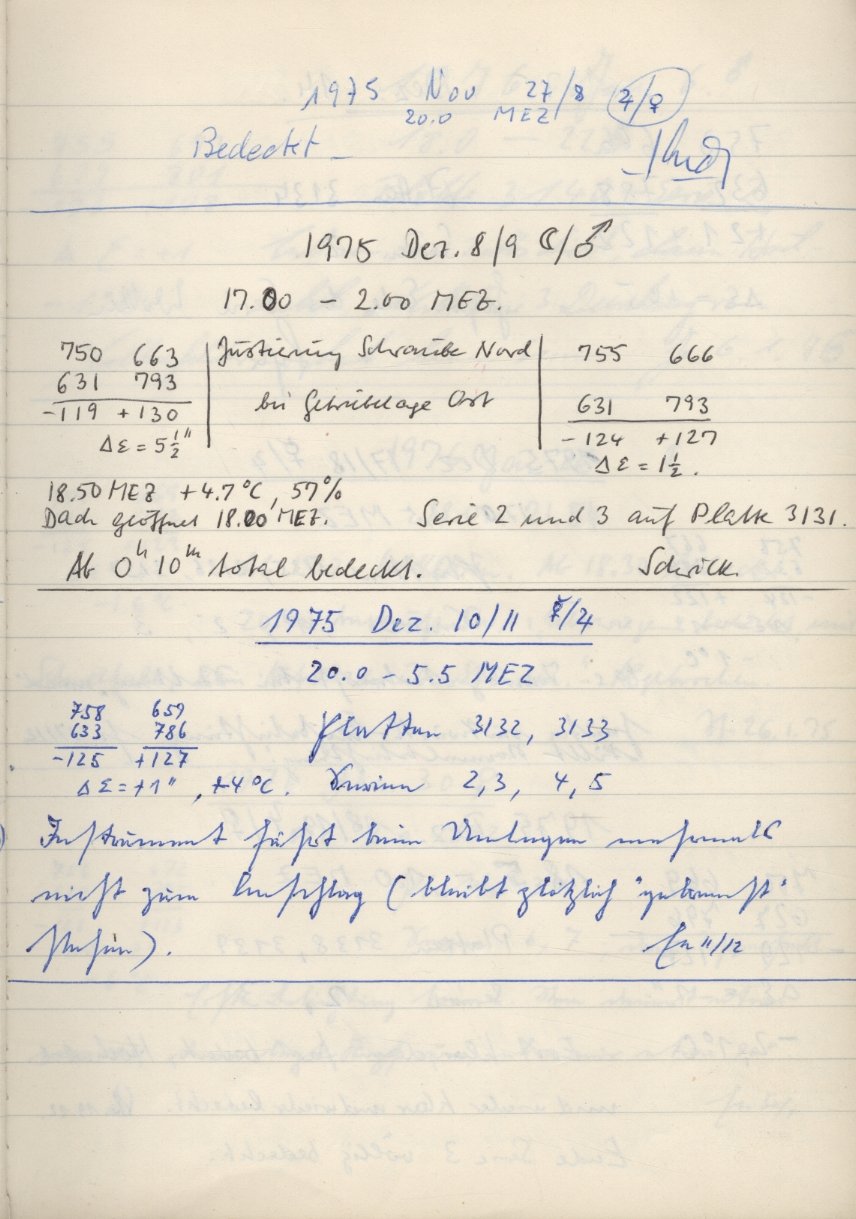 1975 Nov 27/8 ♃/♀
20.0 MEZ
Bedeckt –
1975 Dez. 8/9 ☾/♂
17.00 – 2.00 MEZ.
750 663 | Justierung Schraube Nord | 755 666
631 793 | bei Getriebelage Ost | 631 793
-119 +130 | | -124 +127
Δε = 5½" | | Δε = 1½.
18.50 MEZ +4.7°C, 57%
Dach geöffnet 18.00 MEZ. Serie 2 und 3 auf Platte 3131.
Ab 0ʰ 10ᵐ total bedeckt. Schrick
1975 Dez. 10/11 ☿/♃
20.0 – 5.5 MEZ
758 659
633 786 Platten 3132, 3133
-125 +127
Δε = +1", +4°C. Serien 2, 3, 4, 5
Instrument fährt beim Umlegen mehrmals
nicht zum Anschlag (bleibt plötzlich "gebremst"
stehen). 11/12